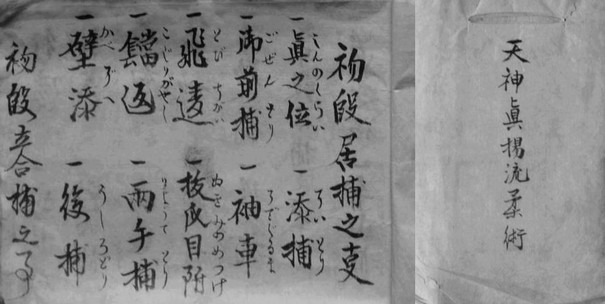 天神眞楊流柔術
初段居捕之事
一眞之位 一添捕
しんのくらい そいとり
一御前捕 一袖車
ごぜんどり そでぐるま
一飛違 一抜身目附
とびちがい ぬきみのめつけ
一鐺返 一両手捕
こじりがへし りようてどり
一壁添 一後捕
かべぞへ うしろどり
初段立合捕之事